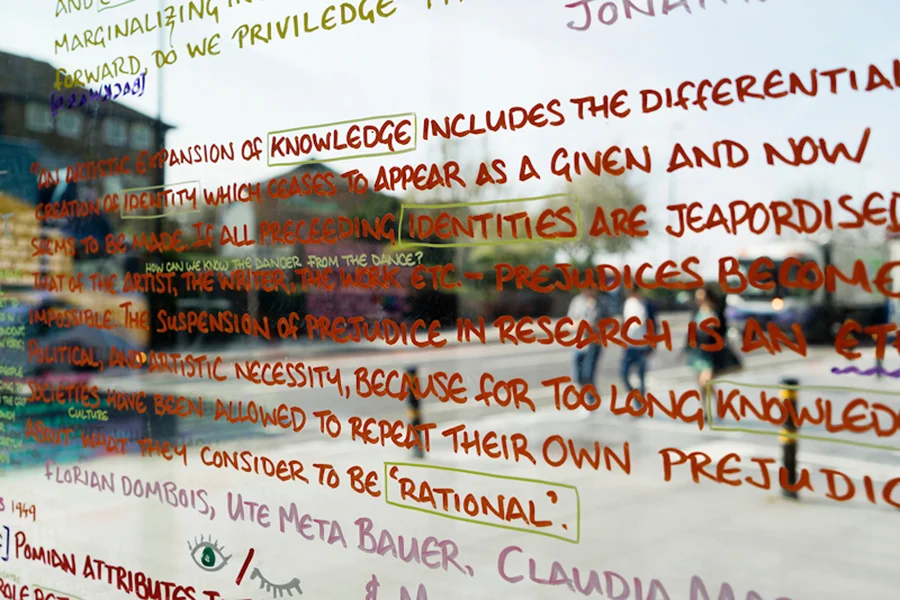 MARGINALIZING
FORWARD, DO WE PRIVILEDGE
"AN ARTISTIC EXPANSION OF KNOWLEDGE INCLUDES THE DIFFERENTIAL
CREATION OF IDENTITY WHICH CEASES TO APPEAR AS A GIVEN AND NOW
SEEMS TO BE MADE. IF ALL PRECEEDING IDENTITIES ARE JEAPORDISED
HOW CAN WE KNOW THE DANCER FROM THE DANCE?
THAT OF THE ARTIST, THE WRITER, THE WORK ETC. - PREJUDICES BECOME
IMPOSSIBLE. THE SUSPENSION OF PREJUDICE IN RESEARCH IS AN
POLITICAL, AND ARTISTIC NECESSITY, BECAUSE FOR TOO LONG KNOWLED
SOCIETIES HAVE BEEN ALLOWED TO REPEAT THEIR OWN PREJUDIC
CULTURE
ABOUT WHAT THEY CONSIDER TO BE 'RATIONAL'.
FLORIAN DOMBOIS, UTE META BAUER, CLAUDIA
1949
POMIAN ATTRIBUTES